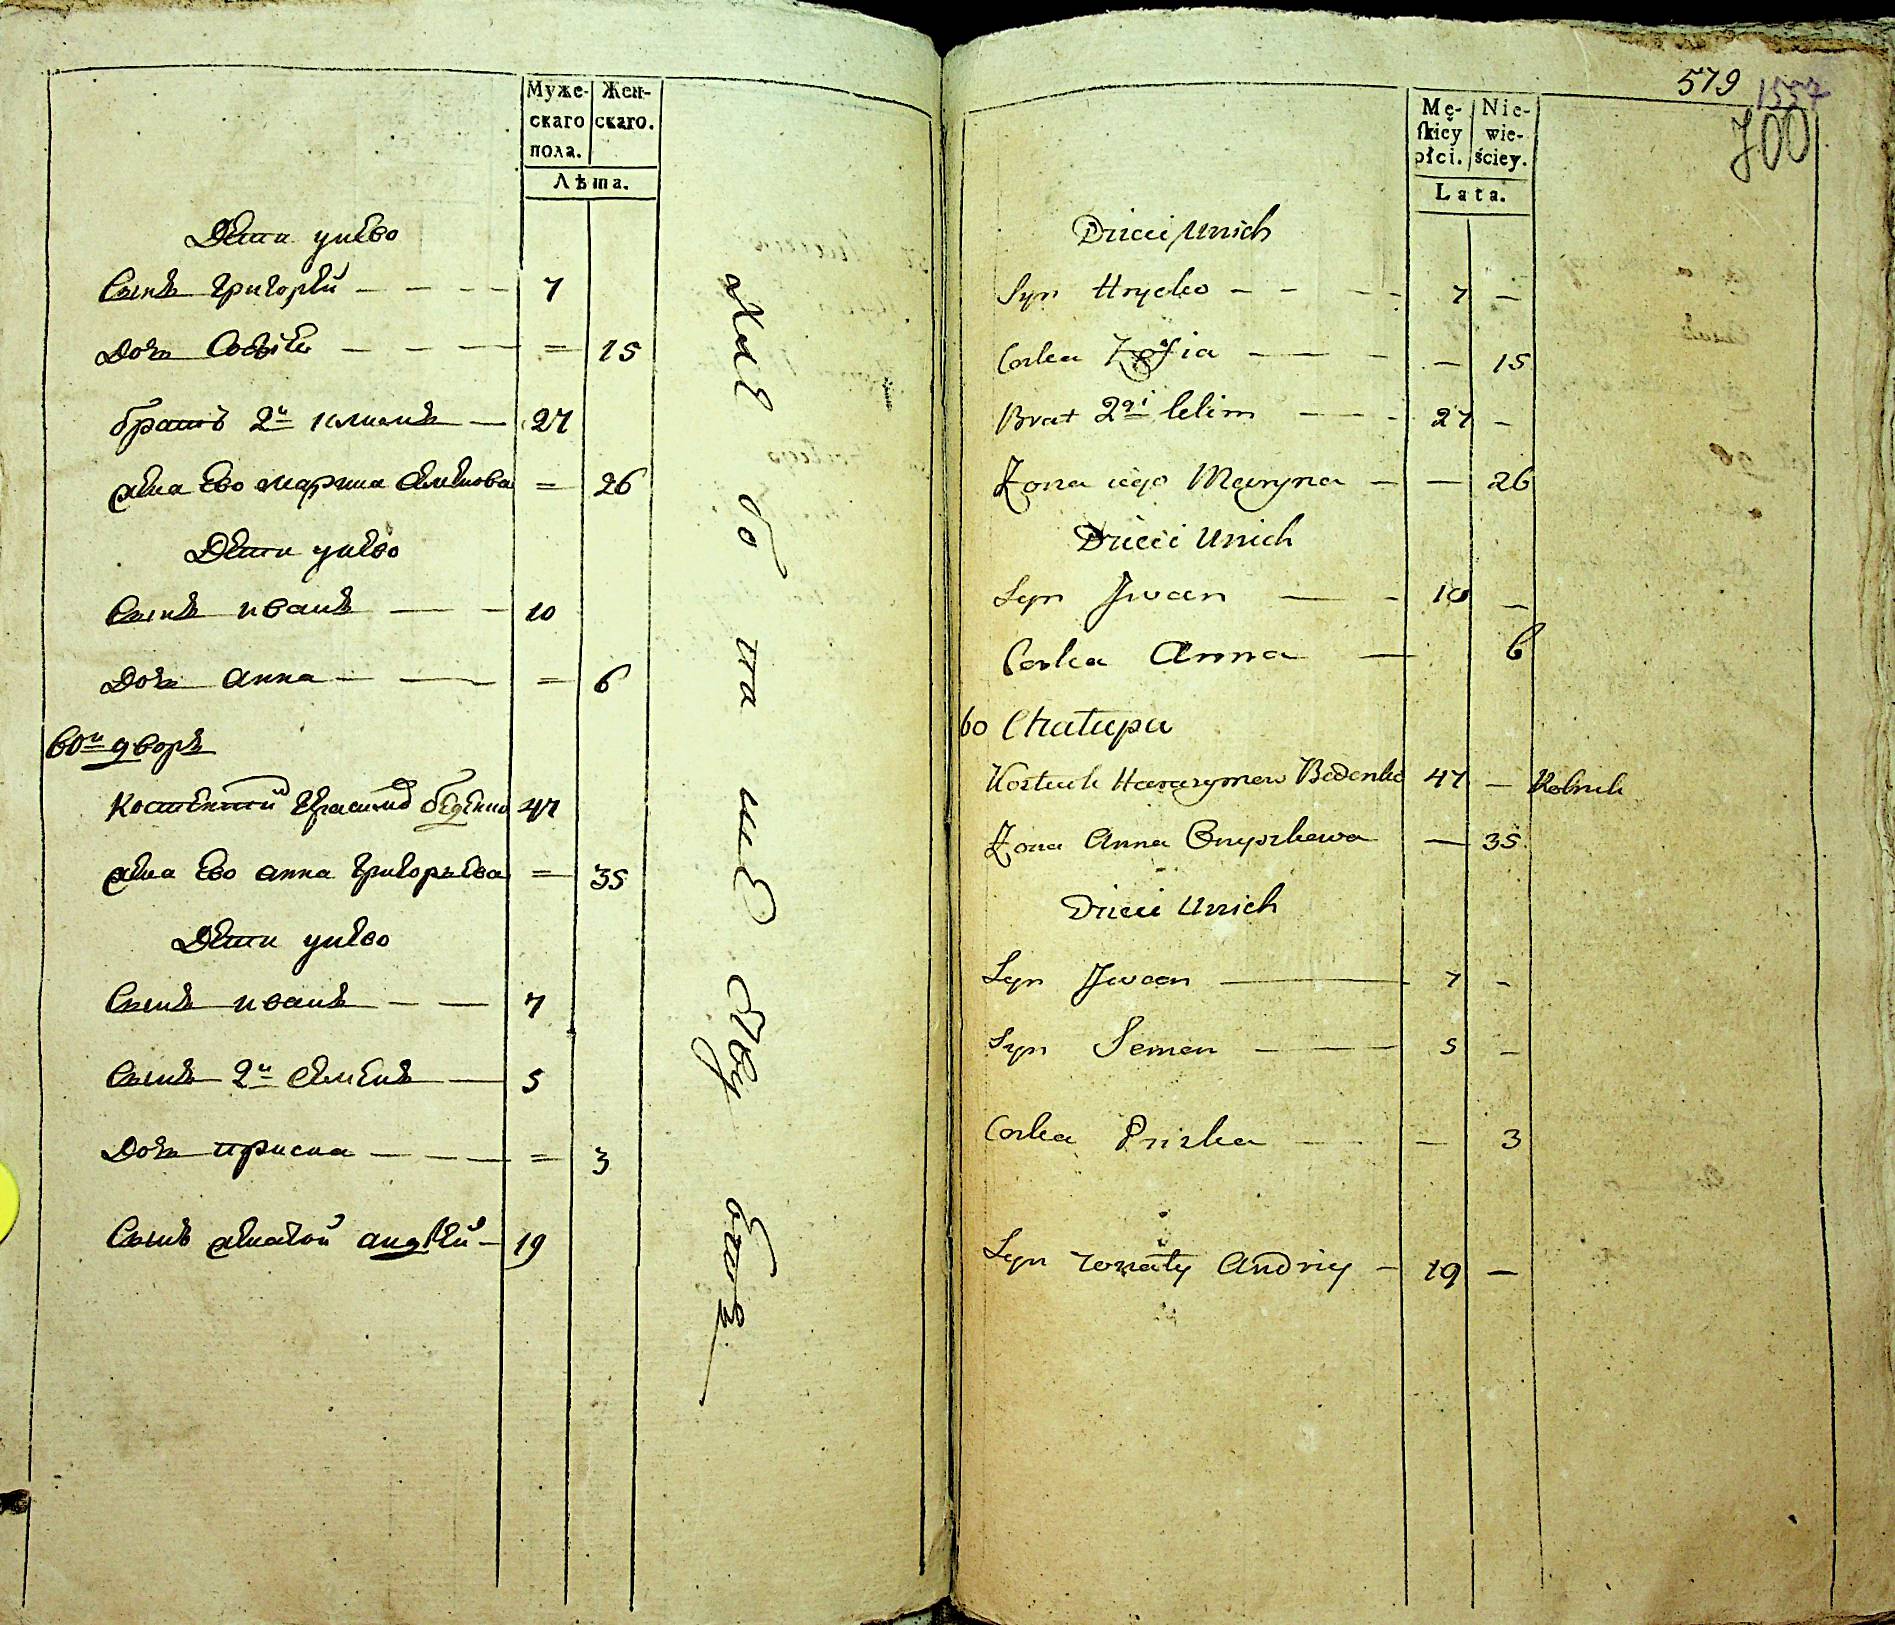 Муже-
скаго
пола.
Жен-
скаго.
Лѣта.
Дети унево
Сынъ григорей — — — 7
Дочь Софья — — — = 15
братъ 2й климъ — 27
жена ево марина Семенова = 26
Дети унево
Сынъ иванъ — — 10
Дочь анна — — = 6
60й дворъ
Костентий Герасимов беденко 47
жена ево анна григорьева = 35
Дети унево
Сынъ иванъ — — 7
Сынъ 2й Семенъ — 5
Дочь приска — — — = 3
Сынъ женатой андрей — 19
579
1557
700
Mę-
skiey
płci.
Nie-
wie-
ściey.
Lata.
Dzieci Unich
Syn Hrycko — — — 7 —
Corka Zofia — — — — 15
Brat 2gi klim — — 27 —
Zona iego Maryna — — 26
Dzieci Unich
Syn Jwan — — 10 —
Corka Anna — 6
60 Chałupa
Kostiuk Harasymow Bedenko 47 — Rolnik
Zona Anna Onyszkowa — 35
Dzieci Unich
Syn Jwan — 7 —
Syn Semen — — 5 —
Corka Priska — — — 3
Syn zonaty Andriy — 19 —